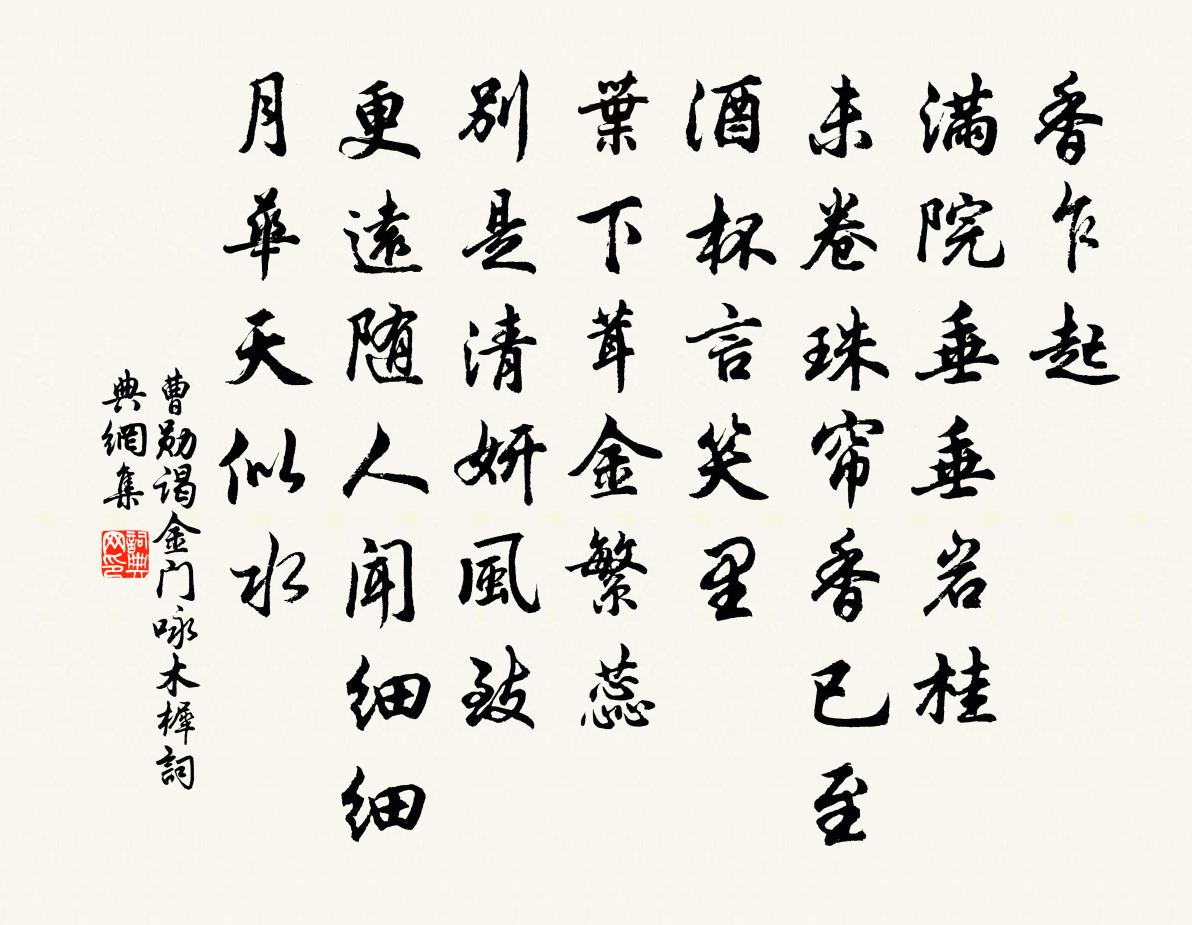 香乍起
满院垂垂岩桂
未卷珠帘香已至
酒杯言笑里
葉下茸金繁蕊
别是清妍風致
更遠随人闻细细
月華天似水
曹勋谒金门咏木樨詞
典網集
詞典
网印